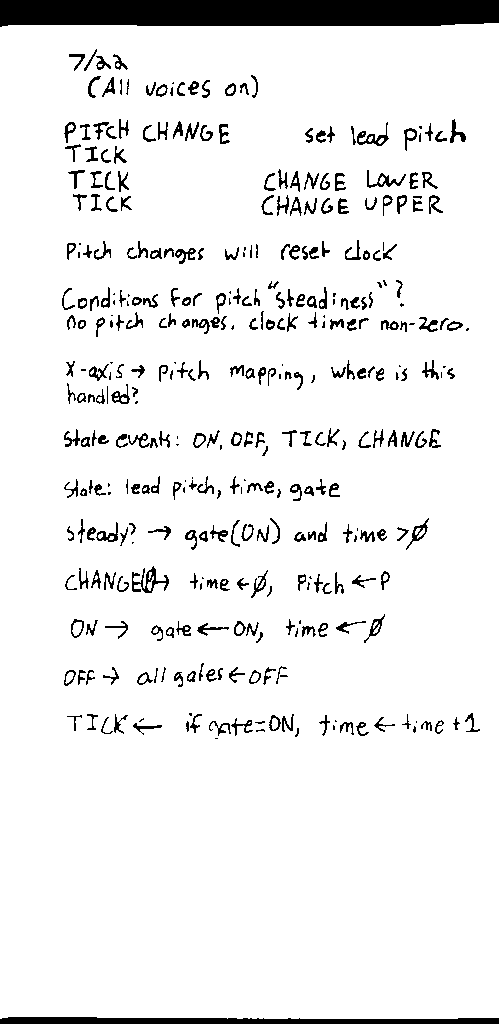 7/22
(All voices on)
PITCH CHANGE set lead pitch
TICK
TICK CHANGE LOWER
TICK CHANGE UPPER
Pitch changes will reset clock
Conditions for pitch "steadiness"?
no pitch changes. clock timer non-zero.
X-axis → pitch mapping, where is this
handled?
State events: ON, OFF, TICK, CHANGE
State: lead pitch, time, gate
Steady? → gate(ON) and time >Ø
CHANGE(P)→ time ←Ø, Pitch ←P
ON → gate ← ON, time ← Ø
OFF → all gates ← OFF
TICK ← if gate=ON, time ← time +1